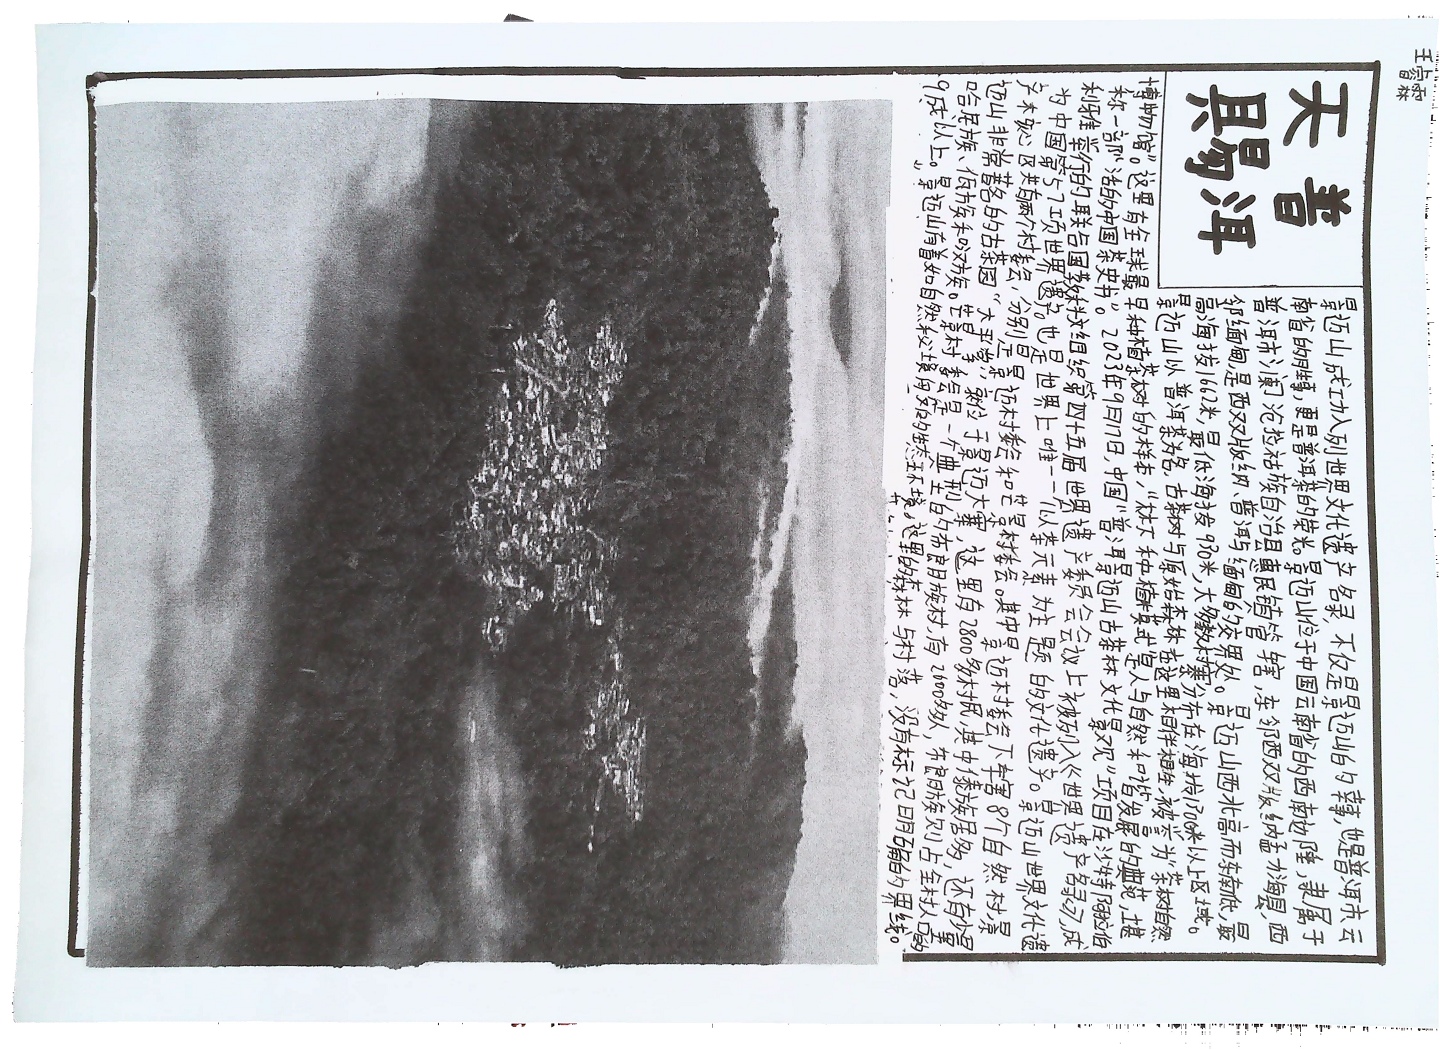 王睿霖
天普
賜洱
景迈山成功入列世界文化遗产名录,不仅是景迈山的幸事,也是普洱市、云
南省的胜事,更是普洱茶的荣光。景迈山位于中国云南省的西南边陲,隶属于
普洱市澜沧拉祜族自治县惠民镇管辖,东邻西双版纳勐海县,西
邻缅甸,是西双版纳、普洱与缅甸的交界处。景迈山西北高而东南低,最
高海拔1662米,最低海拔930米,大多数村寨分布在海拔1300米以上区域。
景迈山以普洱茶为名,古茶树与原始森林在这里相伴相生,被誉为“茶树自然
博物馆”。这里有全球最早种植茶树的样本,“林下种植模式”是人与自然和谐发展的典范,堪
称一部“活的中国茶史书”。2023年9月17日,中国“普洱景迈山古茶林文化景观”项目在沙特阿拉伯
利雅举行的联合国教科文组织第四十五届世界遗产委员会会议上被列入《世界遗产名录》,成
为中国第57项世界遗产。也是世界上唯一一个以茶元素为主题的文化遗产。景迈山世界文化遗
产核心区共有两个村委会,分别是景迈村委会和芒景村委会。其中景迈村委会下辖8个自然村,景
迈山非常著名的古茶园“大平掌”,就位于景迈大寨,这里有2800多村民,其中傣族居多,还有少量
哈尼族、佤族和汉族。芒景村委会是一个典型的布朗族村,有2600多人,布朗族则占全村人口的
9成以上。景迈山有着如自然秘境般的生态环境。这里的森林与村落,没有标记明确的界线。